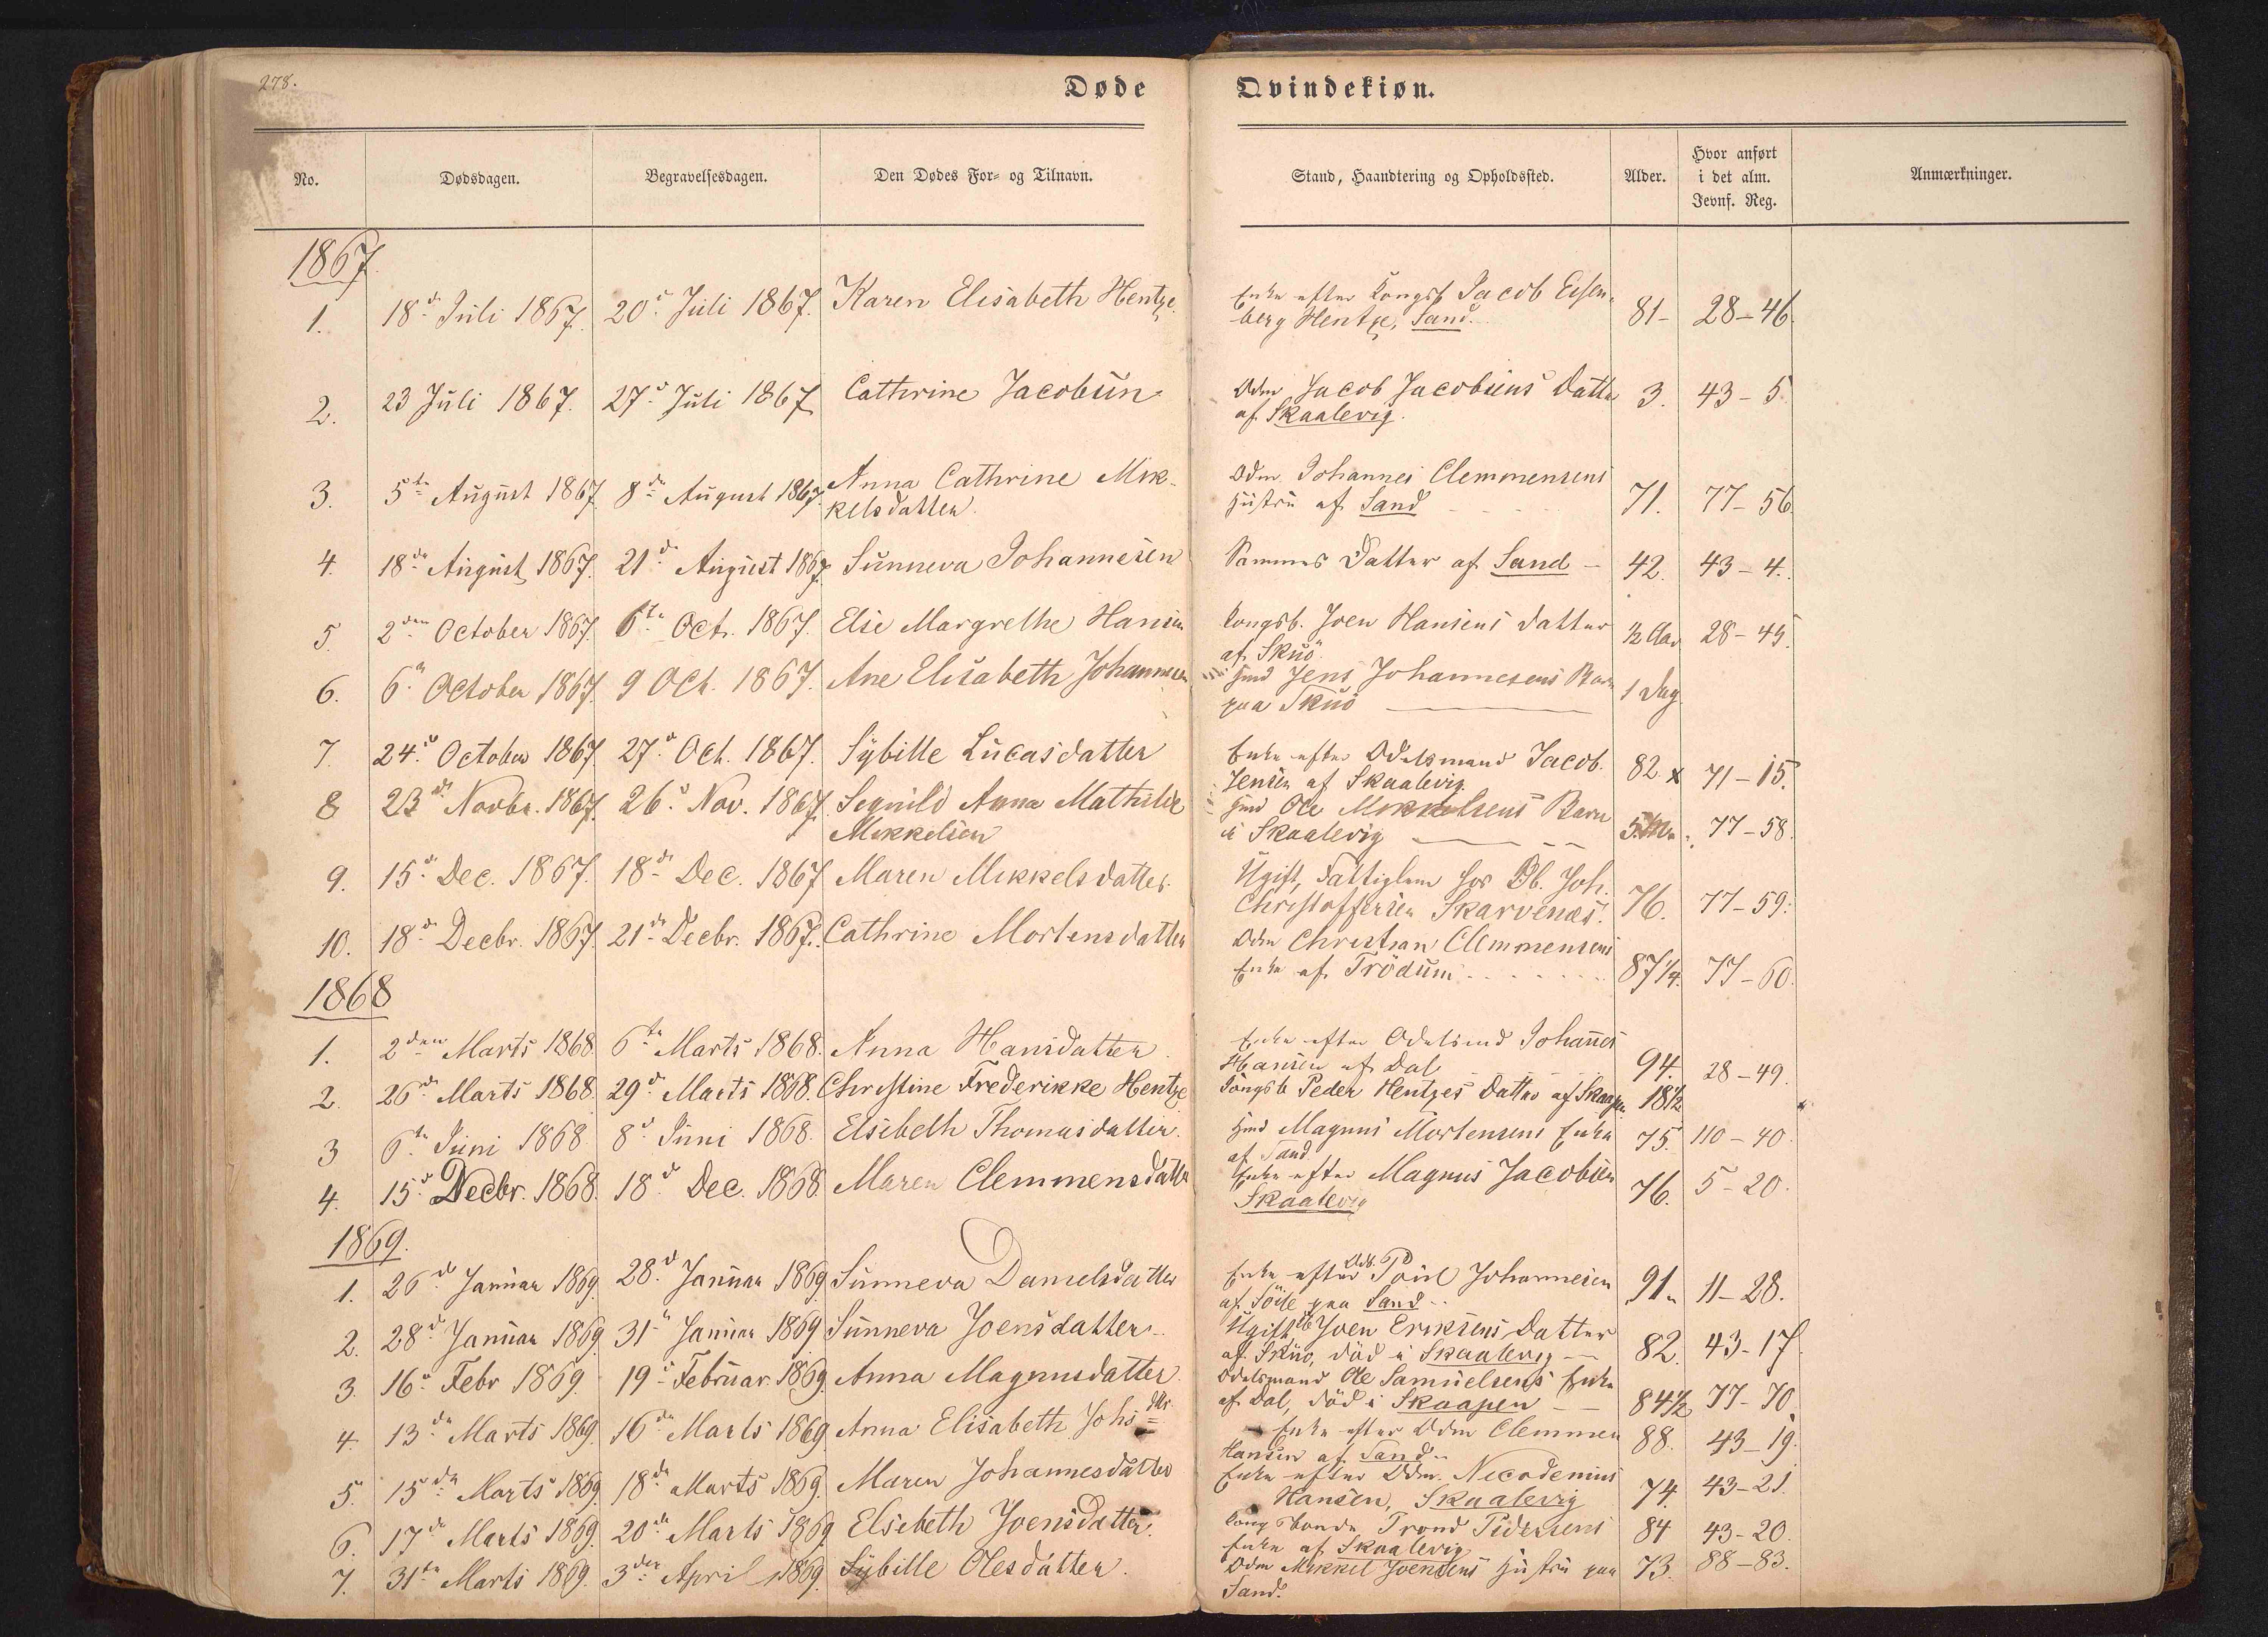 278.
Døde Qvindekiøn.
No. Dødsdagen. Begravelsesdagen. Den Dødes For= og Tilnavn. Stand, Haandtering og Opholdssted. Alder. Hvor anført i det alm. Jevnf. Reg. Anmærkninger.
1867
1. 18d Juli 1867. 20d Juli 1867. Karen Elisabeth Hentze. Enke efter Kongsb Jacob Eisen-
berg Hentze, Sand. 81- 28-46.
2. 23 Juli 1867. 27d Juli 1867 Cathrine Jacobsen Odm Jacob Jacobsens Datter
af Skaalevig. 3. 43-5.
3. 5te August 1867 8de August 1867. Anna Cathrine Mik-
kelsdatter. Odm Johannes Clemmensens
Hustru af Sand 71. 77-56.
4. 18de August 1867. 21de August 1867. Sunneva Johannesen Sammes Datter af Sand - 42. 43-4.
5. 2den October 1867. 6te Oct. 1867. Else Margrethe Hansen Kongsb. Joen Hansens Datter
af Skuö. ½ Aar 28-45.
6. 6te October 1867. 9 Oct. 1867. Ane Elisabeth Johannesen Hmd Jens Johannesens Barn
paa Skuö 1 Dag
7. 24d October 1867 27d Oct. 1867. Sybille Lucasdatter Enke efter Odelsmand Jacob
Jensen af Skaalevig. 82 x 71-15.
8 23de Novbr. 1867. 26d Nov. 1867. Segnild Anna Mathilde
Mikkelsen Hmd Ole Mikkelsens Barn
i Skaalevig 5 Mn. 77-58.
9. 15d Dec. 1867. 18de Dec. 1867 Maren Mikkelsdatter. Ugift, Fattiglem hos Ob. Joh.
Christoffersen Skarvenæs. 76. 77-59.
10. 18de Decbr. 1867. 21de Decbr. 1867. Cathrine Mortensdatter Odm Christian Clemmensens
Enke af Trödum 87¼. 77-60.
1868
1. 2den Marts 1868. 6te Marts 1868. Anna Hansdatter. Enke efter Odelsmd Johannes
Hansen af Dal 94. 28-49.
2. 26de Marts 1868. 29d Marts 1868. Christine Frederikke Hentze Kongsb Peder Hentzes Datter af Skaapen 18½
3 6te Juni 1868 8d Juni 1868. Elsebeth Thomasdatter. Hmd Magnus Mortensens Enke
af Sand 75. 110-40.
4. 15d Decbr. 1868. 18d Dec. 1868 Maren Clemmensdatter Enke efter Magnus Jacobsen
Skaalevig 76. 5-20.
1869.
1. 26d Januar 1869. 28d Januar 1869. Sunneva Danielsdatter Enke efter Poul Johannesen
af Söile paa Sand 91. 11-28.
2. 28d Januar 1869 31te Januar 1869 Sunneva Joensdatter. Ugift Joen Eriksens Datter
af Skuö, död i Skaalevig 82. 43-17.
3. 16d Febr 1869. 19d Februar 1869. Anna Magnusdatter. Odelsmand Ole Samuelsens Enke
af Dal, död i Skaapen 84½ 77-70
4. 13de Marts 1869. 16de Marts 1869 Anna Elisabeth Johsdtr Enke efter Odm Clemmen
Hansen af Sand 88. 43-19.
5. 15de Marts 1869. 18de Marts 1869. Maren Johannesdatter Enke efter Odm. Nicodemus
Hansen, Skaalevig 74. 43-21.
6. 17de Marts 1869. 20de Marts 1869 Elsebeth Joensdatter. Kongsbonde Trond Pedersens
Enke af Skaalevig 84 43-20.
7. 31te Marts 1869. 3den April 1869. Sybille Olesdatter. Odm Mikkel Joensens Hustru paa
Sand. 73. 88-83.